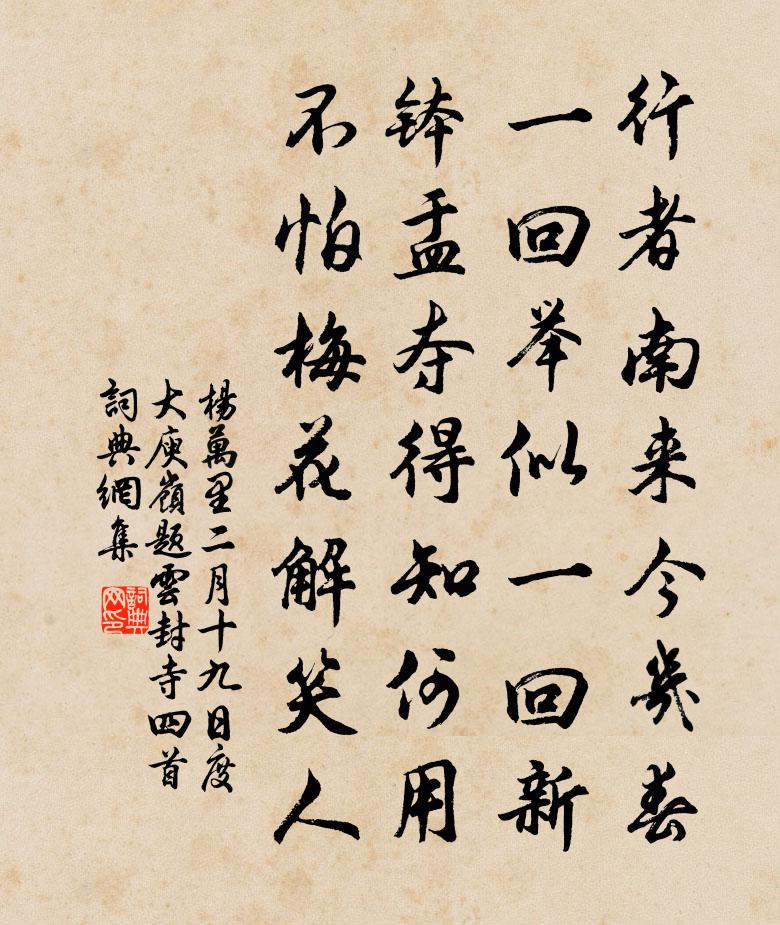 行者南来今幾春
一回举似一回新
钵盂夺得知何用
不怕梅花解笑人
楊萬里二月十九日度
大庾嶺題雲封寺四首
詞典網集
詞典
网印